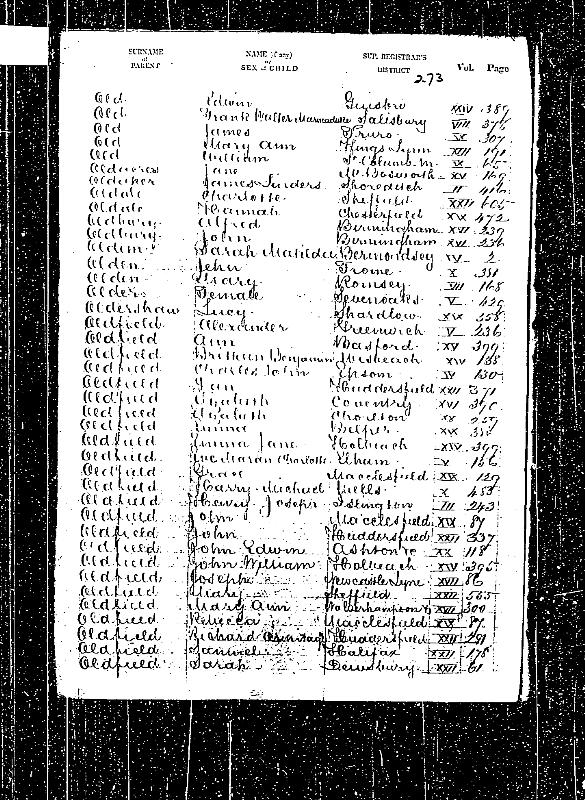 SURNAME of PARENT NAME (if any) or SEX of CHILD SUP. REGISTRAR'S DISTRICT Vol. Page
273
Old Edwin XXIV 389
Old Frank Walter Marmaduke Salisbury VIII
Old James Truro IX 307
Old Mary Ann Kings Lynn XIII 191
Old William St Columb M. IX 65
Jane M. Bosworth XV 169
James Shoreditch II 416
Oldale Charlotte Sheffield XXII 605
Oldale Hannah Chesterfield XIX 472
Oldbury Alfred Birmingham XVI 239
Oldbury John Birmingham XVI 236
Sarah Matilda Bermondsey IV 2
Olden John Frome X 331
Olden Romsey VIII 168
Olders Female Sevenoaks V 429
Oldershaw Lucy Shardlow XIX 558
Oldfield Alexander Greenwich V 236
Oldfield Ann Basford XV 399
Oldfield Benjamin Wisbeach XIV 188
Oldfield Charles John Epsom IV 130
Oldfield Huddersfield XXII 371
Oldfield Elizabeth Coventry XVI
Oldfield Elizabeth Chorlton XX 257
Oldfield Emma Belper XIX
Oldfield Emma Jane Holbeach XIV 399
Oldfield Charlotte Elham V 156
Oldfield Grace Macclesfield XIX 129
Oldfield Harry Michael Wells X 453
Oldfield Henry Joseph Islington III 243
Oldfield John Macclesfield XIX 87
Oldfield John Huddersfield XXII 337
Oldfield John Edwin Ashton XX 118
Oldfield John William Holbeach XIV 395
Oldfield Joseph Newcastle Lyne XVII 86
Oldfield Mary Sheffield XXII 565
Oldfield Mary Ann Wolverhampton XVII 300
Oldfield Rebecca Macclesfield XIX 87
Oldfield Richard Armitage Huddersfield XXII 291
Oldfield Samuel Halifax XXII 178
Oldfield Sarah Dewsbury XXII 61